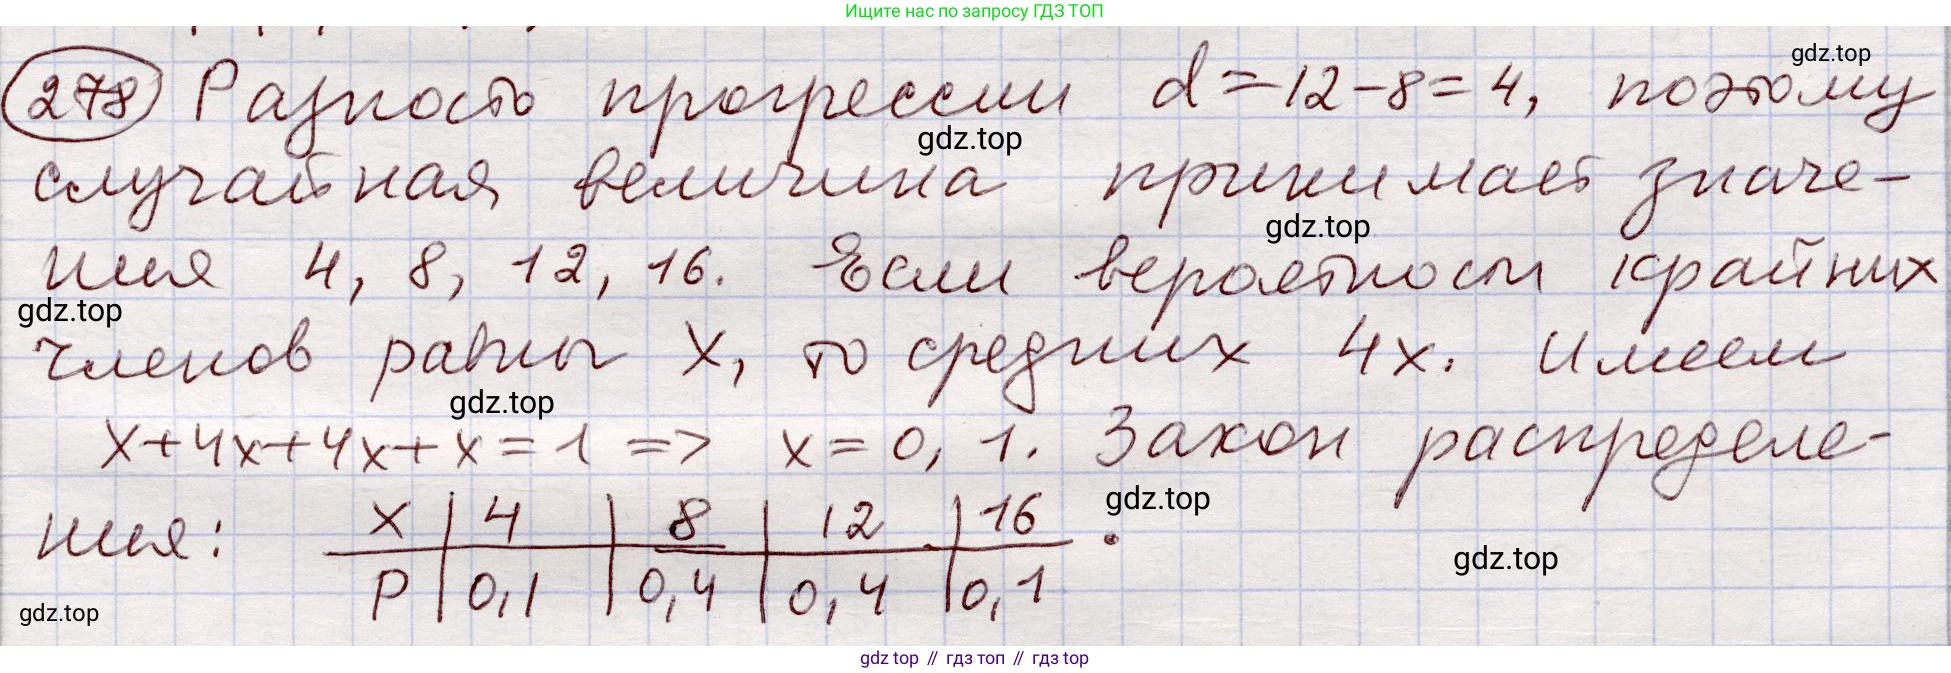 Ищите нас по запросу ГДЗ ТОП
gdz.top
278 Разность прогрессии d = 12 - 8 = 4, поэтому
gdz.top
случайная величина принимает значе-
gdz.top
ния 4, 8, 12, 16. Если вероятности крайних
gdz.top
членов равны x, то средних 4x. Имеем
gdz.top
x + 4x + 4x + x = 1 => x = 0,1. Закон распределе-
gdz.top
ния: X | 4 | 8 | 12 | 16 .
gdz.top
P | 0,1 | 0,4 | 0,4 | 0,1
gdz.top
gdz top // гдз топ // гдз top